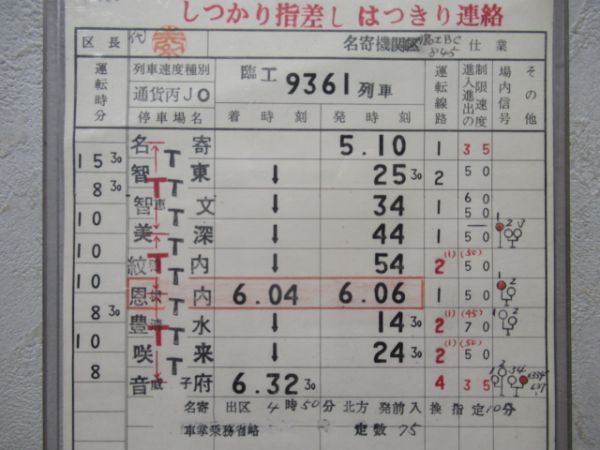 しつかり指差し はつきり連絡
区長 代 名寄機関区 仕業
運転時分 列車速度種別 臨工 9361 列車 運転線路 制限速度 進入進出の 場内信号 その他
通貨丙J0
停車場名 着時刻 発時刻
名寄 5.10 1 35
15 30 T
智東 ↓ 25 30 2 50
8 30 T
智恵文 ↓ 34 1 60 50
10 T
美深 ↓ 44 1 50
10 T
紋内 ↓ 54 2 (1) (50) 50
10 T
恩根内 6.04 6.06 1 50
8 30 T
豊清水 ↓ 14 30 2 (1) (45) 70
10 T
咲来 ↓ 24 30 2 (1) (50) 50
8 T
音威子府 6.32 30 4 35
名寄 出区 4時50分 北方 発前入換指定10分
車掌乗務省略 定数 75